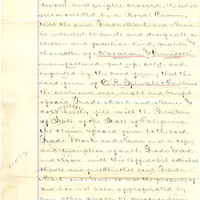 Sword, and peoples crossed, the whole
surmounted by a Royal Crown,
and the said Trade Mark and Name
is intended to denote and designate a
certain and peculiar kind, quality and
character of Macaroni & Vermicelli
manufactured, put up, sold, and
exported by the said firm; that the
said firm of
the exclusive use, right and benefit
of said Trade Mark and Name
and hereby file with the Secretary
of State of the State of California
the claim of said firm to the said
Trade Mark and Name and a copy
and description of such Trade Mark
and Name with this affidavit attached
thereto and further that said Trade
Mark
and has not been appropriated by
any other person